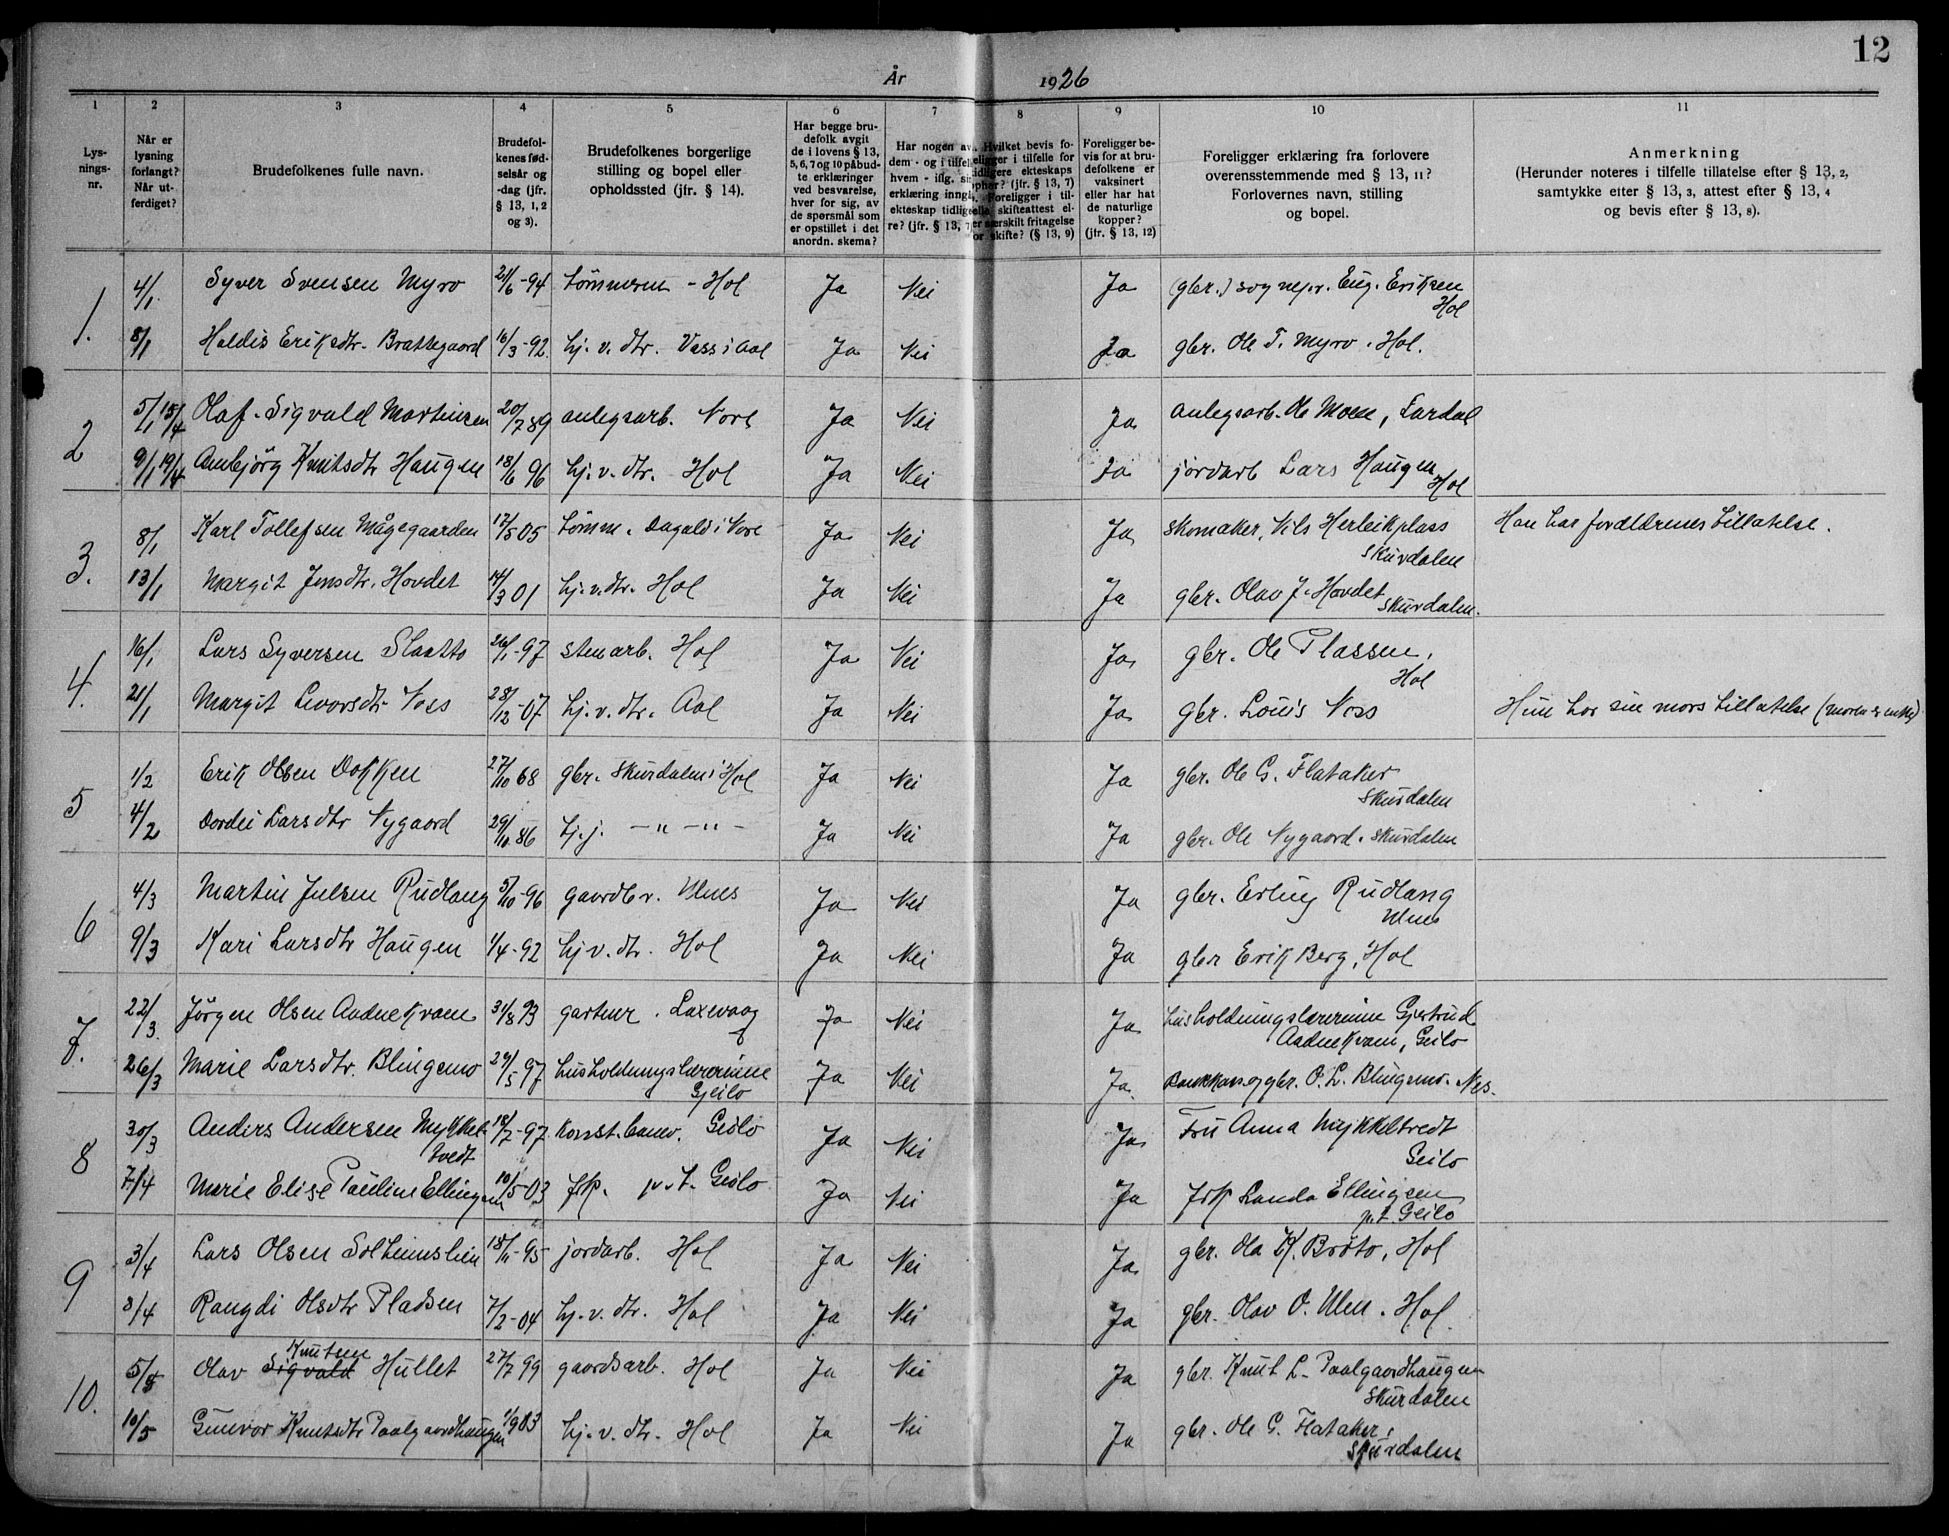 12
År 1926
1 2 3 4 5 6 7 8 9 10 11
Lys-
nings-
nr.
Når er
lysning
forlangt?
Når ut-
ferdiget?
Brudefolkenes fulle navn.
Brudefol-
kenes fød-
selsår og
-dag (jfr.
§ 13, 1, 2
og 3).
Brudefolkenes borgerlige
stilling og bopel eller
opholdssted (jfr. § 14).
Har begge bru-
defolk avgit
de i lovens § 13,
5, 6, 7 og 10 påbud-
te erklæringer
ved besvarelse,
hver for sig, av
de spørsmål som
er opstillet i det
anordn. skema?
Har nogen av
dem - og i tilfel
hvem - iflg. si
erklæring inngå
ekteskap tidlige
re? (jfr. § 13, 7
Hvilket bevis fo-
eligger i tilfelle for
idligere ekteskaps
ophør? (jfr. § 13, 7)
. Foreligger i til-
elle skifteattest el-
er særskilt fritagelse
or skifte? (§ 13, 9)
Foreligger be-
vis for at bru-
defolkene er
vaksinert
eller har hat
de naturlige
kopper?
(jfr. § 13, 12)
Foreligger erklæring fra forlovere
overensstemmende med § 13, 11?
Forlovernes navn, stilling
og bopel.
Anmerkning
(Herunder noteres i tilfelle tillatelse efter § 13, 2,
samtykke etter § 13, 3, attest efter § 13, 4
og bevis efter § 13, 8).
1. 4/1 Syver Svensen Myro 21/6-94 tømmerm - Hol Ja Nei Ja (gbr.) sognepr. Eug. Eriksen
Hol
8/1 Haldis Eriksdtr. Brattegaard 16/3-92. hj. v. dtr. Vass i Aal Ja Nei Ja gbr. Ole T. Myro. Hol.
2 5/1 15/4 Olaf Sigvald Martinsen 20/7 89 anlegsarb. Nore Ja Nei Ja anlegsarb. Ole Moen, Lardal
9/1 19/4 Ambjörg Knutsdtr Haugen 18/6 96 hj. v. dtr. Hol Ja Nei Ja jordarb Lars Haugen
Hol
3. 8/1 Karl Tollefsen Mågegaarden 17/5 05 tømm. Dagali i Nore Ja Nei Ja skomaker, Nils Herleikplass Han har forældrenes tillatelse.
Skurdalen
13/1 Margit Jensdtr. Hovdet 14/3 01 hj. v. dtr. Hol Ja Nei Ja gbr. Olav J. Hovdet
Skurdalen.
4. 16/1 Lars Syversen Slaatto 26/1-97 stenarb. Hol Ja Nei Ja gbr. Ole Plassen,
Hol
21/1 Margit Levorsdtr Noss 28/12-07 hj. v. dtr. Aal Ja Nei Ja gbr. Louis Noss Hun har sin mors tillatelse (moren er enke).
5 1/2 Erik Olsen Dokken 27/10 68 gbr. Skurdalen i Hol Ja Nei Ja gbr. Ole G. Flataker
Skurdalen
4/2 Dordei Larsdtr Nygaard 29/10 86 hj. j. - " - " - Ja Nei Ja gbr. Ole Nygaard. Skurdalen
6 4/3 Martin Julsen Rudlang 5/10-96 gaardbr. Ulnes Ja Nei Ja gbr. Erling Rudlang
Ulnes
9/3 Kari Larsdtr Haugen 1/4-92 hj v. dtr. Hol Ja Nei Ja gbr Erik Berg, Hol
7. 22/3 Jørgen Olsen Aadnekvam 31/8 93 gartner. Laxevaag Ja Nei Ja husholdningslærerinne Gjertrud
Aadnekvam, Geilo
26/3 Marie Larsdtr. Blingsmo 29/5 97 husholdningslærerinne Ja Nei Ja. Bankkas. og gbr. O. L. Blingsmo. Nes.
Gjeilo
8 30/3 Anders Andersen Mykkel- 18/7-97 Konst. banev. Geilo Ja Nei Ja Fru Anna Mykkeltvedt
tvedt Geilo
7/4 Marie Elise Pauline Ellingsen 10/5-03 frk. p. t. Geilo Ja Nei Ja frk Landa Ellingsen
p. t. Geilo
9 3/4 Lars Olsen Solheimslien 18/11-95 jordarb. Hol Ja Nei Ja gbr. Ola K. Brøto, Hol
8/4 Rangdi Olsdtr Pladsen 7/2-04 hj. v. dtr. Hol Ja Nei Ja gbr. Olav O. Ulen. Hol.
Knutsen
10. 5/5 Olav Sigvald Hullet 27/7 99 gaardsarb. Hol Ja Nei Ja gbr. Knut L. Paalgaardhaugen
Skurdalen
10/5 Gunvor Knutsdtr Paalgaardhaugen 1/9 03 hj. v. dtr. Hol Ja Nei Ja gbr. Ole G. Flataker,
Skurdalen